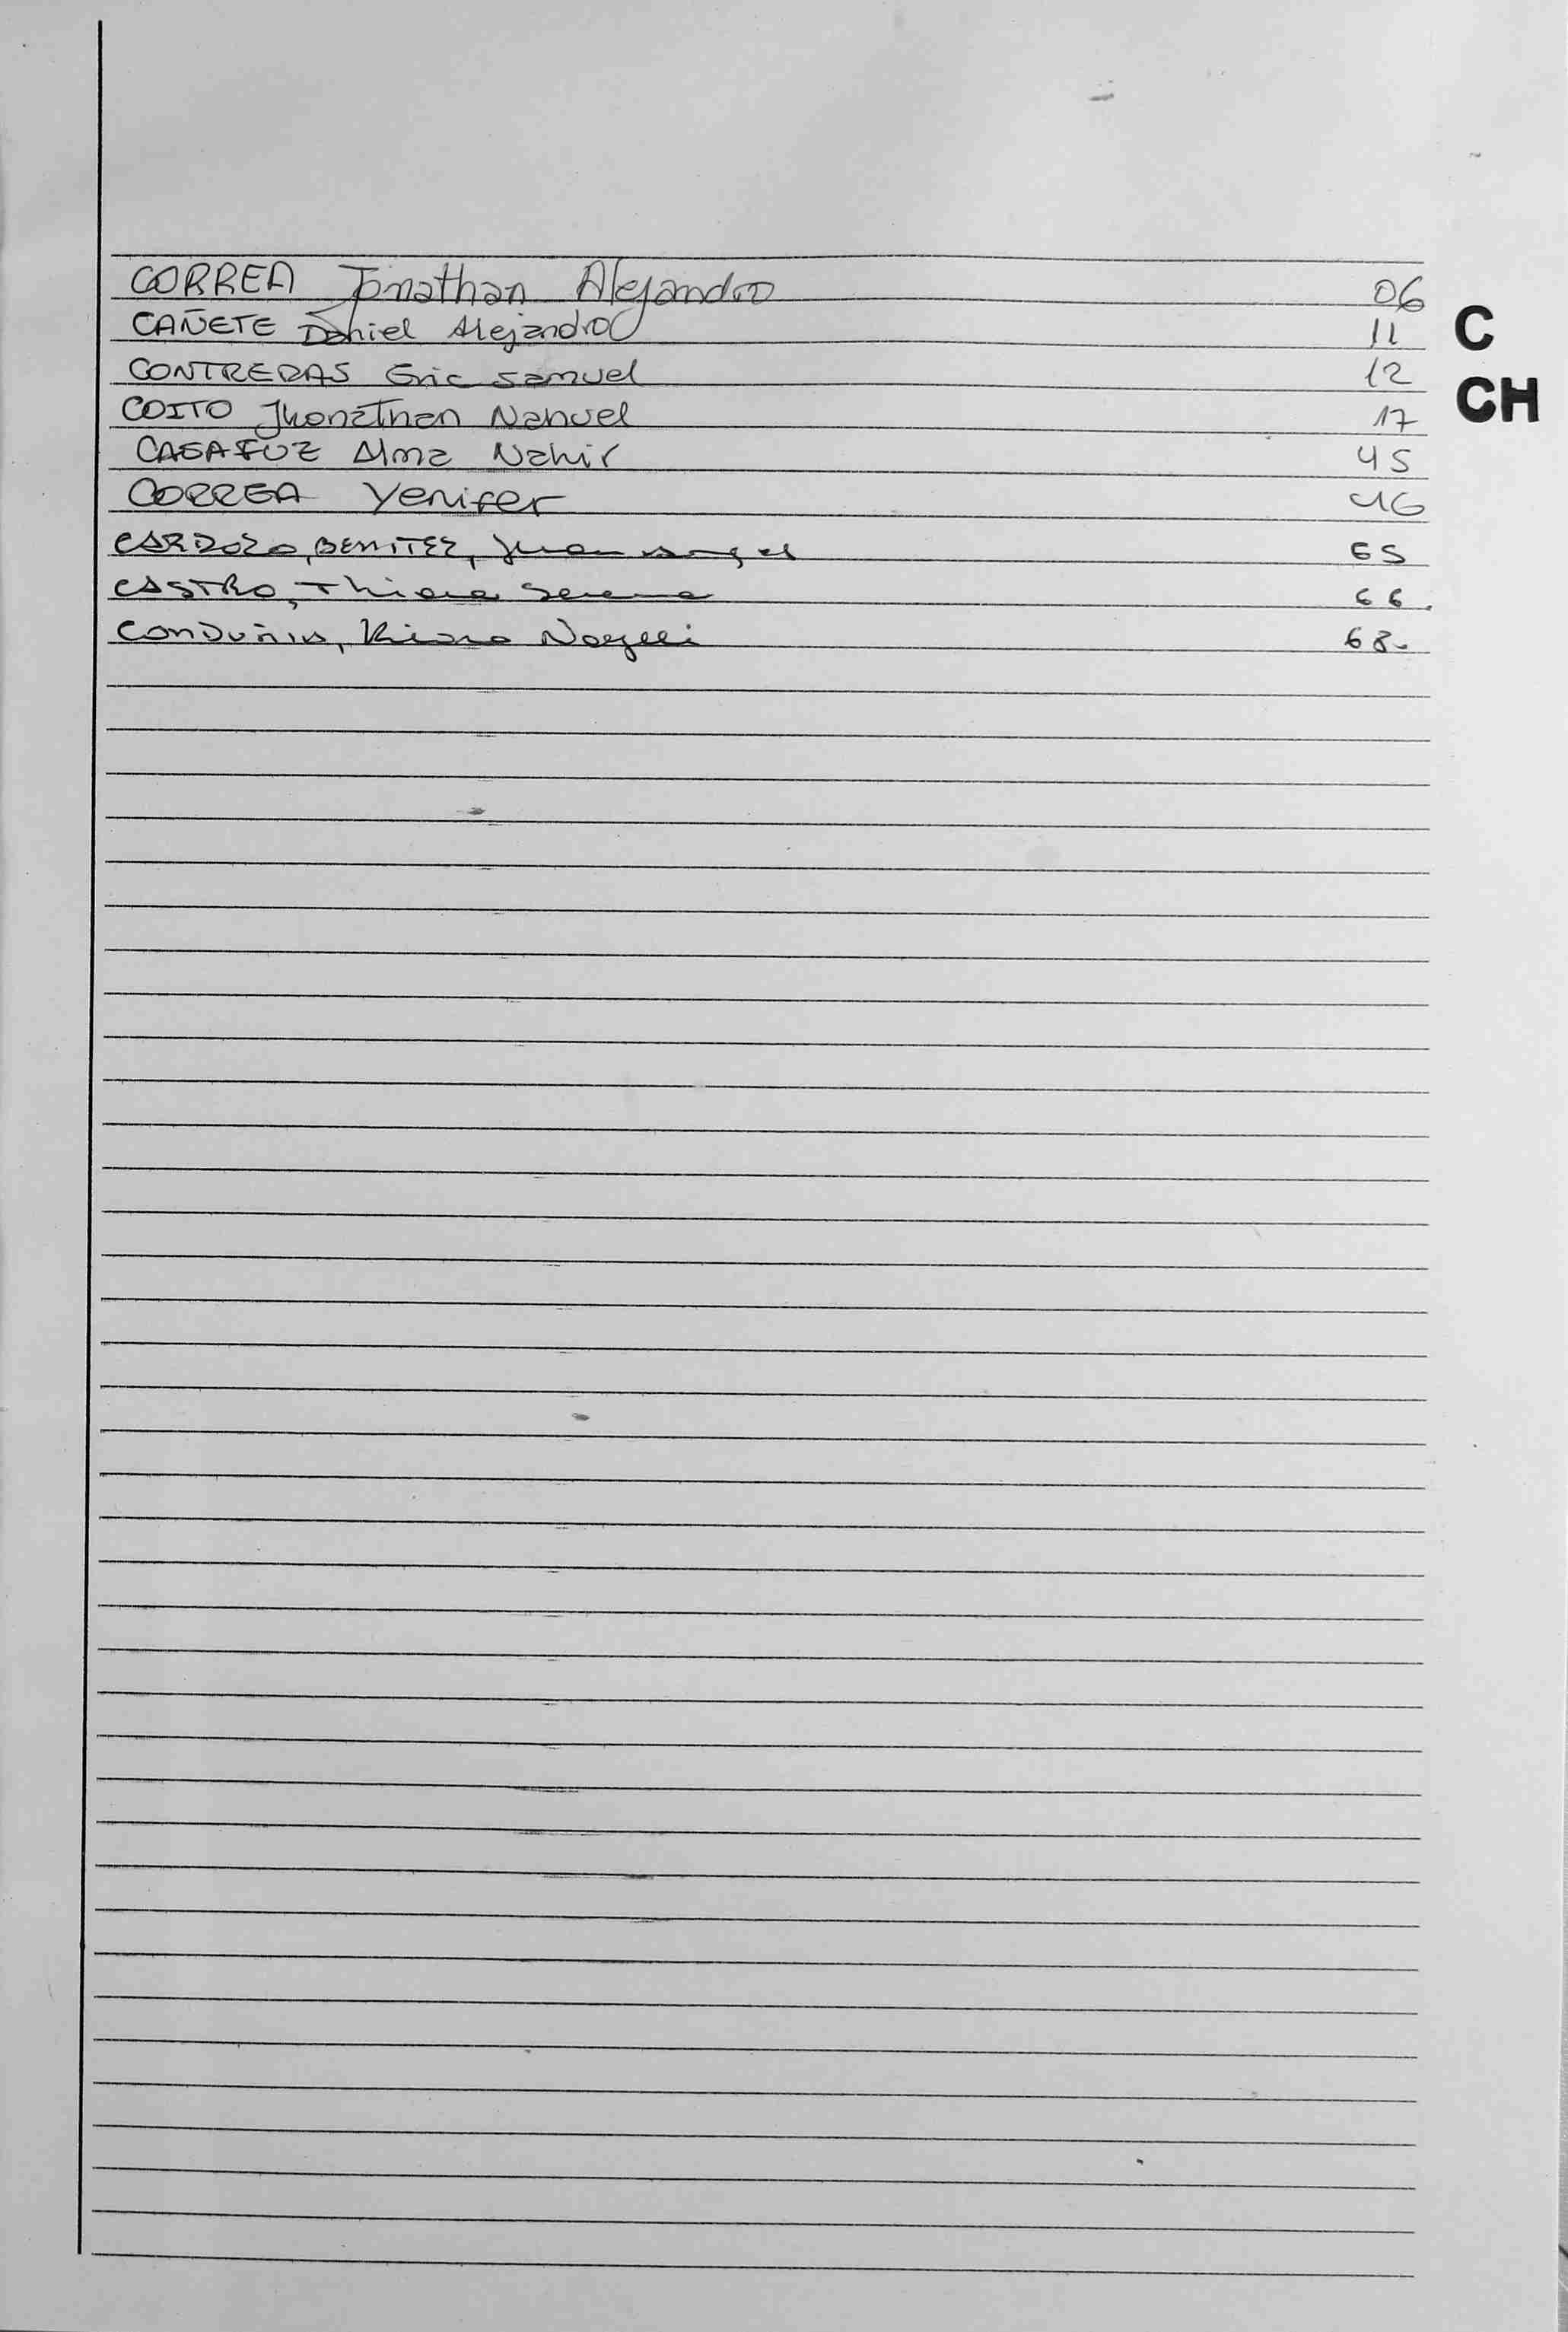 CORREA Jonathan Alejandro 06
CAÑETE Daniel Alejandro 11
C
CONTRERAS Eric Samuel 12
CH
COITO Jhonathan Nahuel 17
CASAFUZ Alma Nahir 45
CORREA Yenifer 46
CARDOZO, BENITEZ, Juan Angel 65
CASTRO, Thiara Serena 66.
Kiara 68-